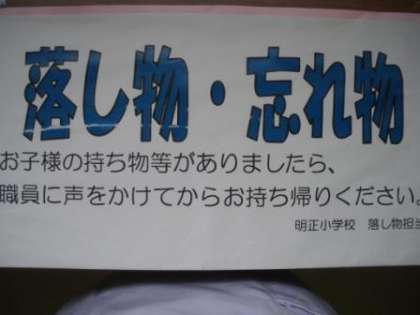 落し物・忘れ物
お子様の持ち物等がありましたら、
職員に声をかけてからお持ち帰りください。
明正小学校　落し物担当